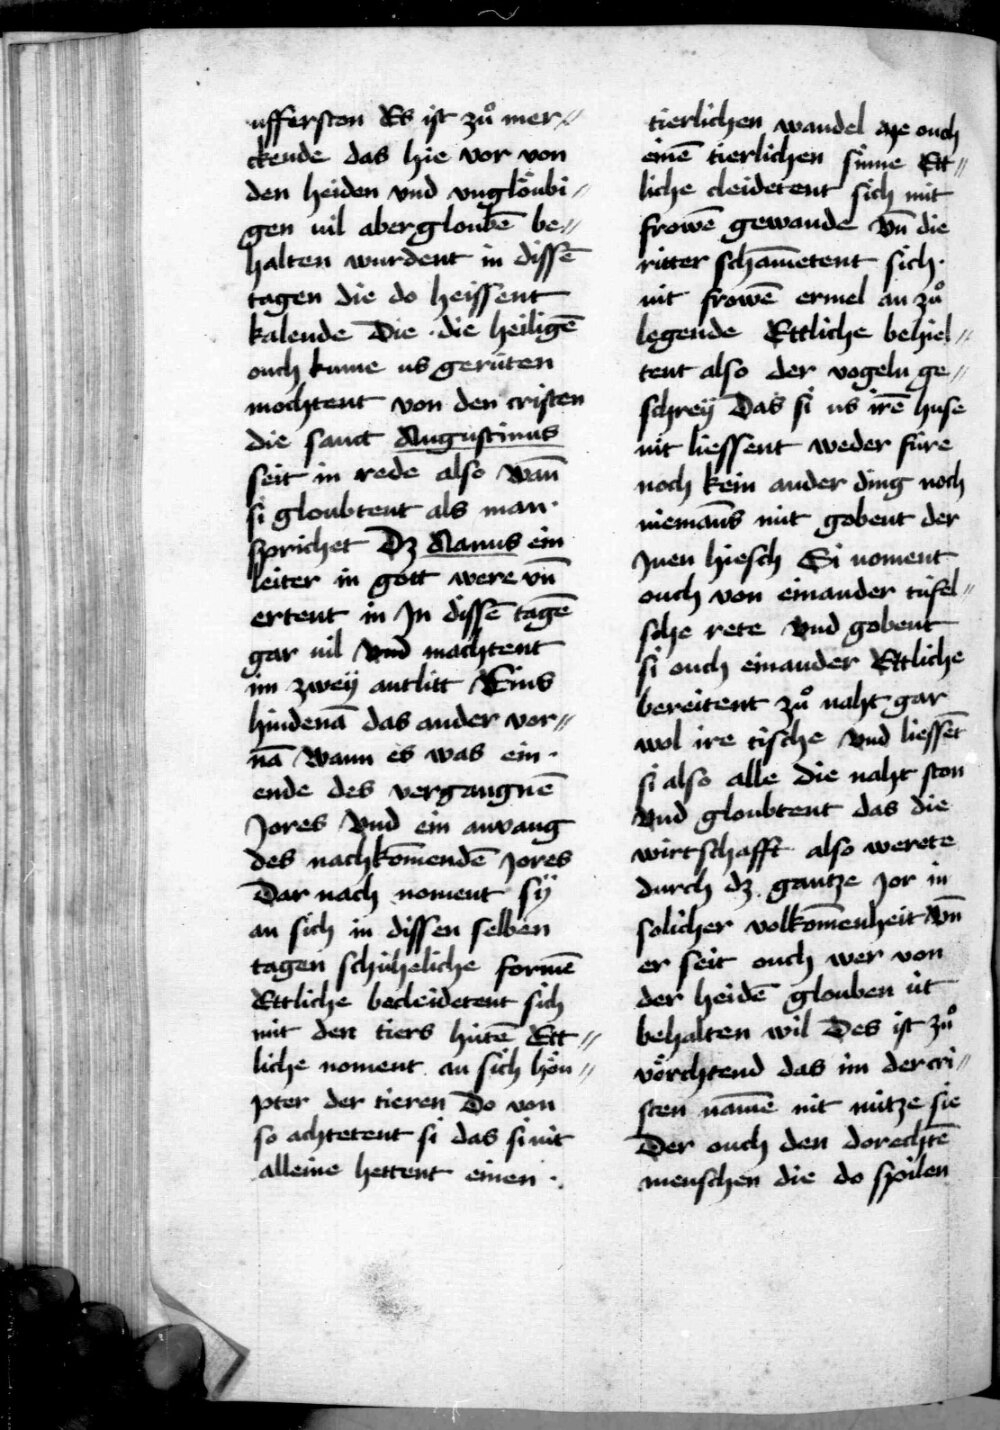 ufferston Es ist zů mer //
ckende das hie vor von
den heiden vnd vnglöubi //
gen vil abergloubē be //
halten wurdent in dissē
tagen die do heissent
kalende Die die heiligē
ouch kume us gerüten
mochtent von den cristen
die sanct Augustinus
seit in rede also wañ
si gloubtent als man
sprichet Dz Aanus ein
leiter in gott were vñ
ertent in Jn dissē tagē
gar vil vnd machtent
im zweÿ antlitt Eins
hindenā das ander vor //
nā wann es was ein
ende des vergangnē
Jores Vnd ein anvang
des nachkōmendē Jores
Dar nach noment sÿ
an sich in dissen selben
tagen schüheliche formē
Ettliche becleidetent sich
mit den tiers hütē Ett //
liche noment an sich höu //
pter der tieren Do von
so achtetent si das si nit
alleine hettent einen
tierlichen wandel ouch
einē tierlichen sinne Ett //
liche cleidetent sich mit
frowē gewande Vñ die
ritter schāmetent sich
nit frowē ermel an zů
legende Ettliche behiel //
tent also der vogeln ge //
schreÿ Das si us irē huse
nit liessent weder füre
noch kein ander ding noch
niemans nüt gobent der
Jnen hiesch Si noment
ouch von einander tüfel //
sche rete Vnd gobent
si ouch einander Ettliche
bereitent zů naht gar
wol ire tische Vnd liessēt
si also alle die naht ston
Vnd gloubtent das die
wirtschafft also werete
durch dz gantze Jor in
solicher volkōmenheit Vñ
er seit ouch wer von
der heidē glouben üt
behalten wil Des ist zů
vörchtend das im der cri //
sten namē nit nütze sie
Der ouch den dorechtē
menschen die do spilen